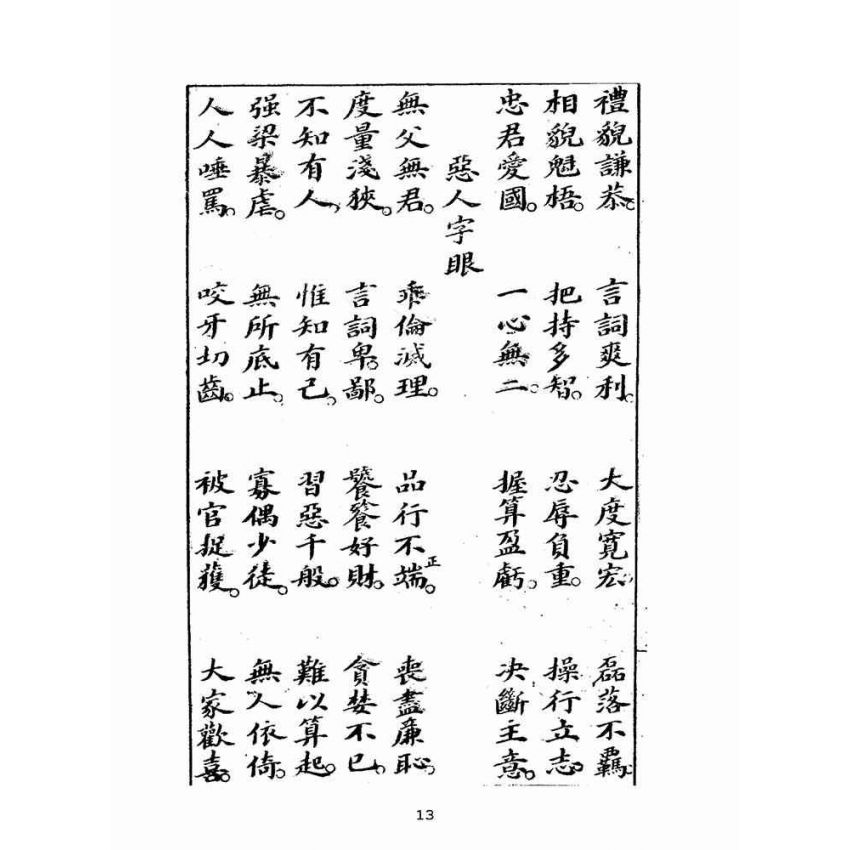 禮貌謙恭。言詞爽利。大度寬宏。磊落不羈。
相貌魁梧。把持多智。忍辱負重。操行立志。
忠君愛國。一心無二。握算盈虧。决斷主意。
惡人字眼
無父無君。乖倫滅理。品行不端。正喪盡廉恥。
度量淺狹。言詞卑鄙。饕餮好財。貪婪不已。
不知有人。惟知有己。習惡千般。難以算起。
强梁暴虐。無所底止。寡偶少徒。無人依倚。
人人唾罵。咬牙切齒。被官捉獲。大家歡喜。
13